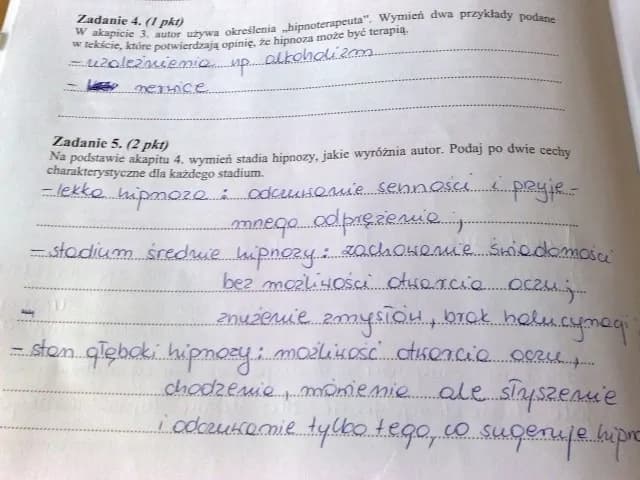 Zadanie 4. (1 pkt)
W akapicie 3. autor używa określenia „hipnoterapeuta”. Wymień dwa przykłady podane
w tekście, które potwierdzają opinię, że hipnoza może być terapią.
- uzależnienia np. alkoholizm
- nerwice
Zadanie 5. (2 pkt)
Na podstawie akapitu 4. wymień stadia hipnozy, jakie wyróżnia autor. Podaj po dwie cechy
charakterystyczne dla każdego stadium.
- lekka hipnoza : odczuwanie senności i przyje-
mnego odprężenia ;
- stadium średnie hipnozy : zachowanie świadomości
bez możliwości otwarcia oczu ;
- znużenie zmysłów, brak halucynacji
- stan głęboki hipnozy : możliwość otwarcia oczu,
chodzenie, mówienie ale słyszenie
i odczuwanie tylko tego, co sugeruje hipno